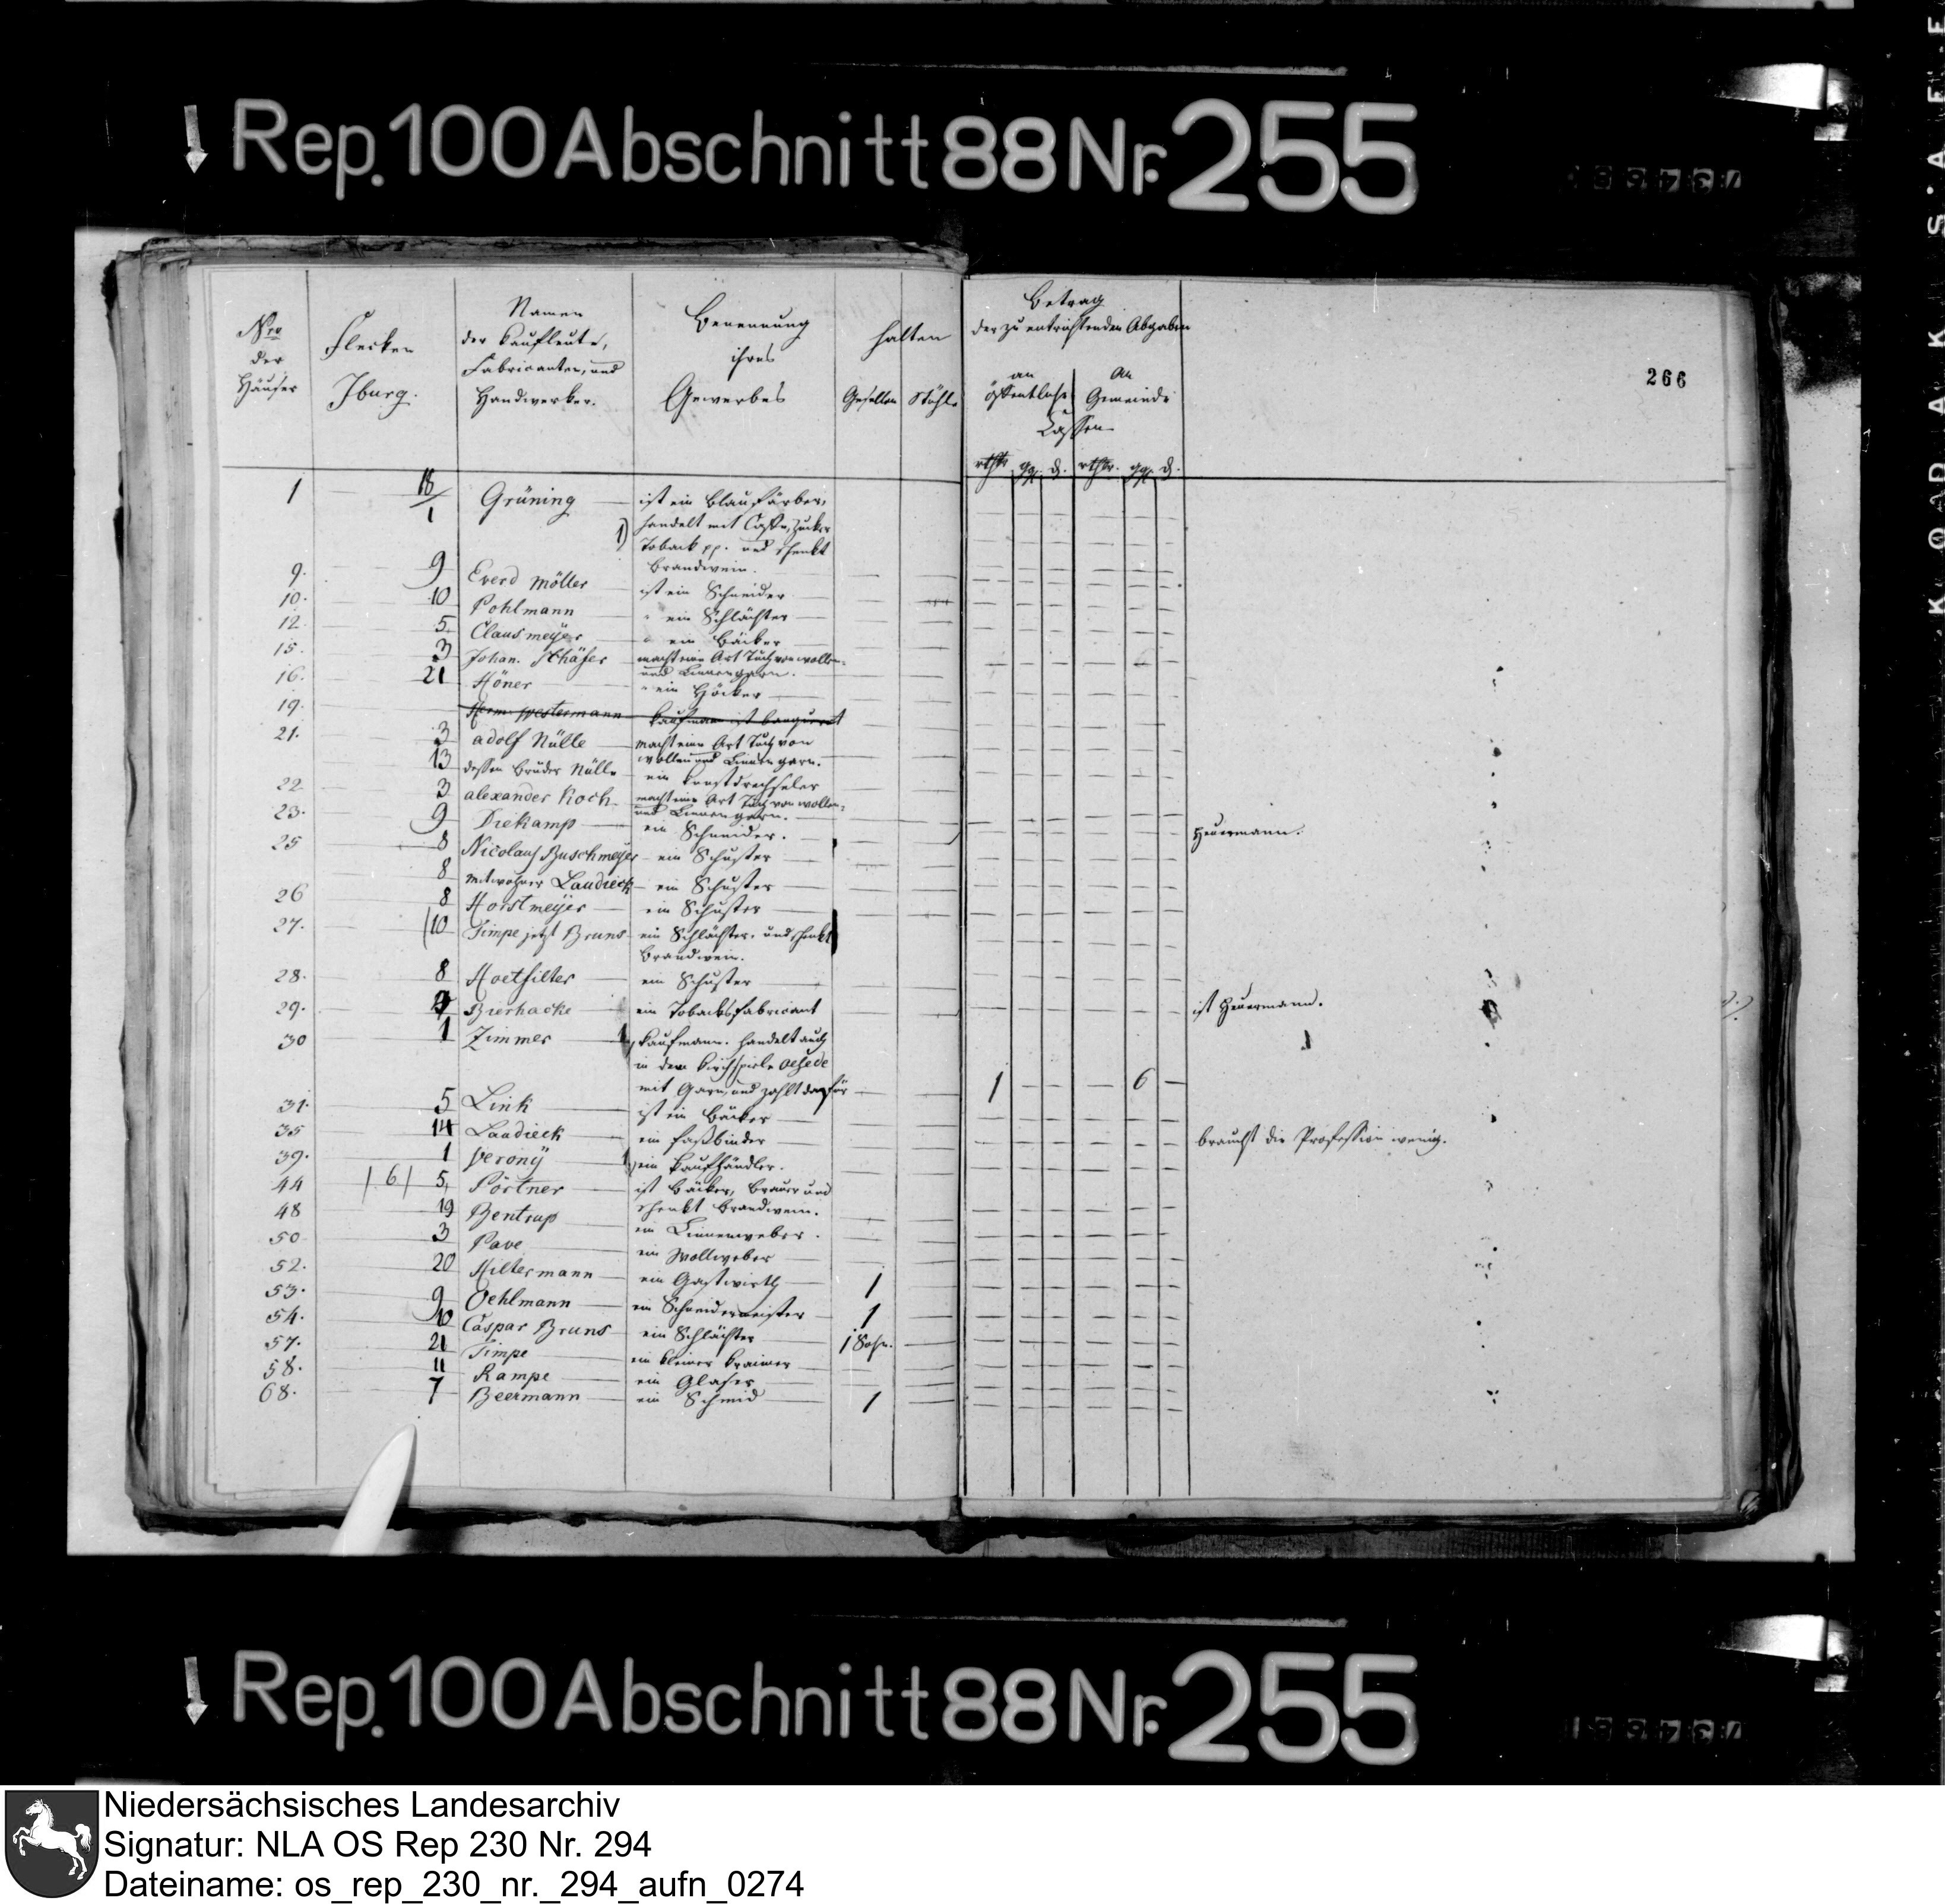 Rep. 100 Abschnitt 88 Nr. 255
266
Nro der Häuser
Flecken Iburg.
Namen der Kaufleute, Fabricanten, und Handwerker.
Benennung ihres Gewerbes
halten
Gesellen Stühle
Betrag
der zu entrichtenden Abgaben
an öffentliche
An Gemeinde
Cassen
rthlr ggr. d. rthlr. ggr. d.
1 18/1 Grüning ist ein Blaufärber,
handelt mit Caffe, Zucker
1) Toback pp. und schenkt
Brandwein.
9. 9 Everd Möller ist ein Schneider
10. 10 Pohlmann " ein Schlächter
12. 5. Clausmeyer " ein Bäcker
15. 3 Johan. Schäfer macht eine Art Tuch von wollen-
und Linnengarn.
16. 21 Höner " ein Höcker
19. Herm. Westermann Kaufmann ist banquerot
21. 3 adolf Nülle macht eine Art Tuch von
wollen und Linnengarn.
13 dessen Bruder Nülle ein Kunstdrechseler
22 3 alexander Koch macht eine Art Tuch von wollen-
und Linnengarn.
23. 9 Diekamp ein Schneider. Heuermann.
25 8 Nicolaus Buschmeyer ein Schuster
8 mitwohner Laudieck ein Schuster
26 8 Horstmeyer ein Schuster
27. 10 Timpe jetzt Bruns ein Schlächter. und schenkt
Brandwein.
28. 8 Hoetfilter ein Schuster
29. Bierhacke ein Tobacksfabricant ist Heuermann.
30 1 Zimmer 1, Kaufmann. handelt auch
in dem Kirchspiele Oesede
mit Garn, und zahlt dafür 1 — — — 6 —
31. 5 Link ist ein Bäcker
35 14 Laudieck ein Faßbinder braucht die Profession wenig.
39. 1 Verony 1, ein Kaufhändler.
44 /6/ 5, Pörtner ist Bäcker, Brauer und
schenkt Brandwein.
48 19 Bentrup ein Linnenweber.
50 3 Pave ein Wollweber
52. 20 Hiltermann ein Gastwirth 1
53. 9 Oehlmann ein Schneidermeister 1
54. 10 Caspar Bruns ein Schlächter 1 Sohn.
57. 21 Timpe ein kleiner Kraimer
58. 11 Rampe ein Glaser
68. 7 Beermann ein Schmid 1
Rep. 100 Abschnitt 88 Nr. 255
Niedersächsisches Landesarchiv
Signatur: NLA OS Rep 230 Nr. 294
Dateiname: os_rep_230_nr._294_aufn_0274